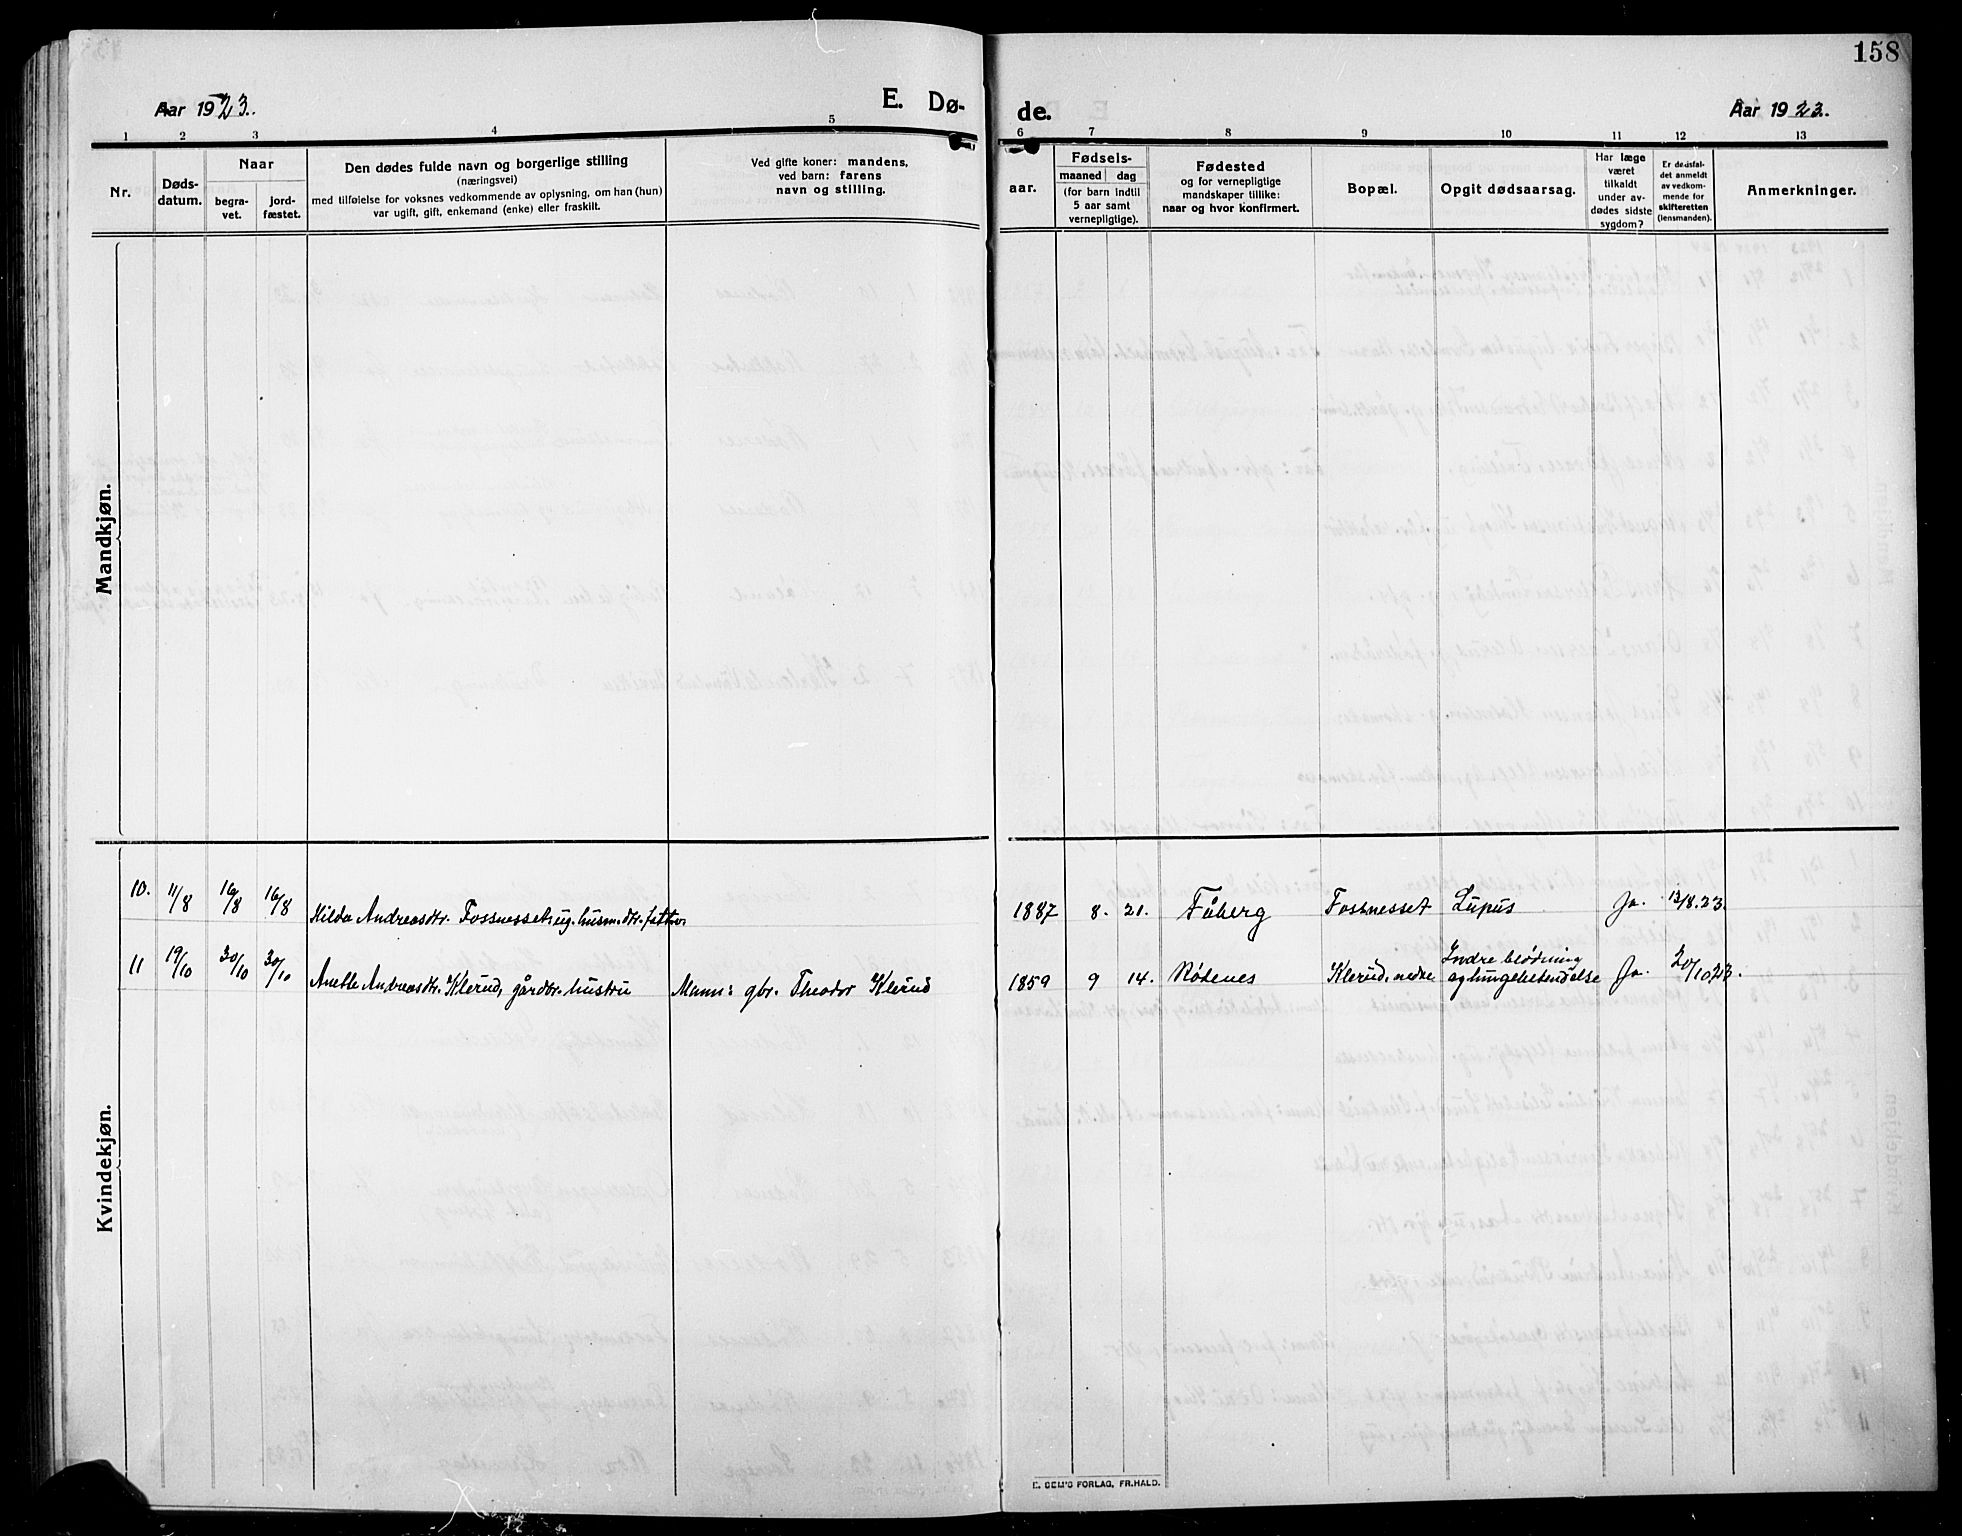 158
Aar 1923.
E. Dø-
de.
Aar 1923.
1 2 3 4 5 6 7 8 9 10 11 12 13
Nr.
Døds-
datum.
Naar
begra-
vet.
jord-
fæstet.
Den dødes fulde navn og borgerlige stilling
(næringsvei)
med tilføielse for voksnes vedkommende av oplysning, om han (hun)
var ugift, gift, enkemand (enke) eller fraskilt.
Ved gifte koner: mandens,
ved barn: farens
navn og stilling.
aar.
Fødsels-
maaned dag
(for barn indtil
5 aar samt
vernepligtige).
Fødested
og for vernepligtige
mandskaper tillike:
naar og hvor konfirmert.
Bopæl.
Opgit dødsaarsag.
Har læge
været
tilkaldt
under av-
dødes sidste
sygdom?
Er dødsfal-
det anmeldt
av vedkom-
mende for
skifteretten
(lensmanden).
Anmerkninger.
Mandkjøn.
Kvindekjøn.
10. 11/8 16/8 16/8 Hilda Andreasdtr. Fossnesset, ug. husm.dtr. 1887 8. 21. Fåberg Fossnesset Lupus Ja. 13/8.23.
11 19/10 30/10 30/10 Anette Andreasdtr. Klerud, gårdbr. hustru Mann: gbr. Theodor Klerud 1859 9 14. Rødenes Klerud, nedre Indre blødning
og lungebetendelse Ja. 20/10.23.
E. SEM'S FORLAG, FR.HALD.